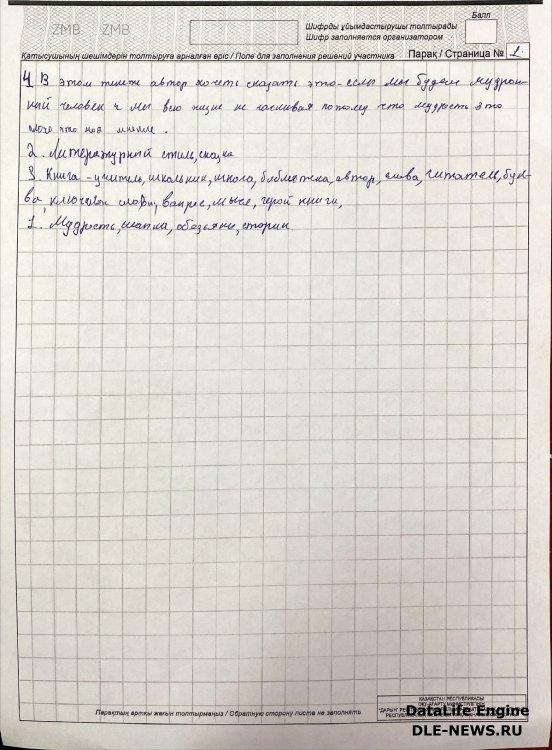 ZMB ZMB
Шифрды ұйымдастырушы толтырады
Шифр заполняется организатором
Балл
Қатысушының шешімдерін толтыруға арналған өріс / Поле для заполнения решений участника Парақ / Страница № 1
4 В этом тексте автор хочеть сказать это-если мы будем мудрый
человек и мы всю жизнь не потому что мудрость это
моё мнение.
2. Литературный стиль, сказка
3. Книга - учитель, школьник, школа, библиотека, автор, слова, читатели, бук-
ва, ключевое слово, вапрос, мысле, герой книги,
1. Мудрость, шапка, обезьяни, сторик.
Парақтың артқы жағын толтырмаңыз / Обратную сторону листа не заполнять
ҚАЗАҚСТАН РЕСПУБЛИКАСЫ
DataLife Engine
DLE-NEWS.RU